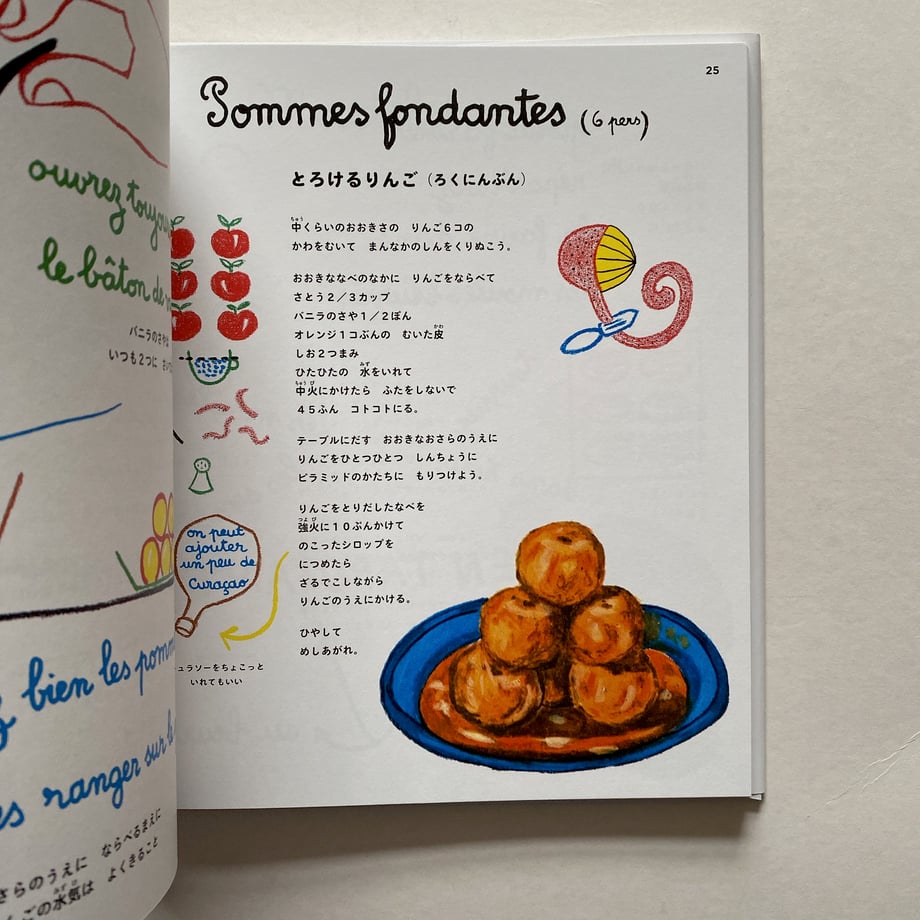 ouvrez
le bâton de
バニラのさや
いつも2つに
bien les
ranger sur
さらのうえに ならべるまえに
水気は よくきること
25
Pommes fondantes (6 pers)
とろけるりんご（ろくにんぶん）
中くらいのおおきさの りんご6コの
かわをむいて まんなかのしんをくりぬこう。
おおきななべのなかに りんごをならべて
さとう2／3カップ
バニラのさや1／2ぽん
オレンジ1コぶんの むいた皮
しお2つまみ
ひたひたの 水をいれて
中火にかけたら ふたをしないで
45ふん コトコトにる。
テーブルにだす おおきなおさらのうえに
りんごをひとつひとつ しんちょうに
ピラミッドのかたちに もりつけよう。
りんごをとりだしたなべを
強火に10ぷんかけて
のこったシロップを
につめたら
ざるでこしながら
りんごのうえにかける。
ひやして
めしあがれ。
on peut
ajouter
un peu de
Curaçao
ュラソーをちょこっと
いれてもいい